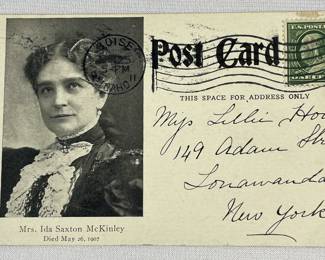 BOISE
PM
IDAHO
Post Card
U.S. POST
THIS SPACE FOR ADDRESS ONLY
Miss Lillie
149 Adam
Tonawanda
New York
Mrs. Ida Saxton McKinley
Died May 26, 1907